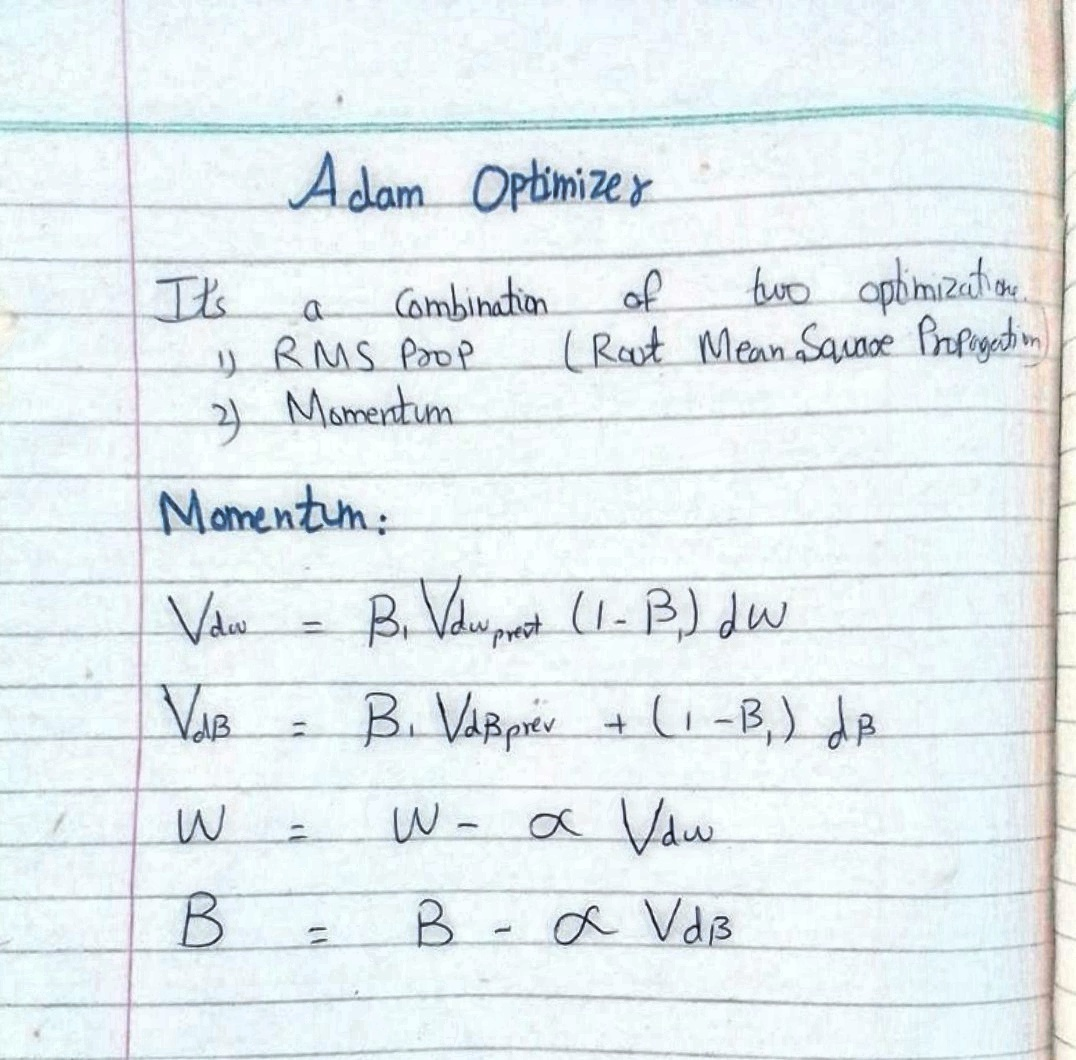 Adam Optimizer
Its a Combination of two optimization.
1) RMS Prop (Root Mean Square Propagation)
2) Momentum
Momentum:
Vdw = β₁ Vdw prev+ (1-β₁) dw
Vdβ = β₁ Vdβ prev + (1-β₁) dβ
W = W - α Vdw
B = B - α Vdβ